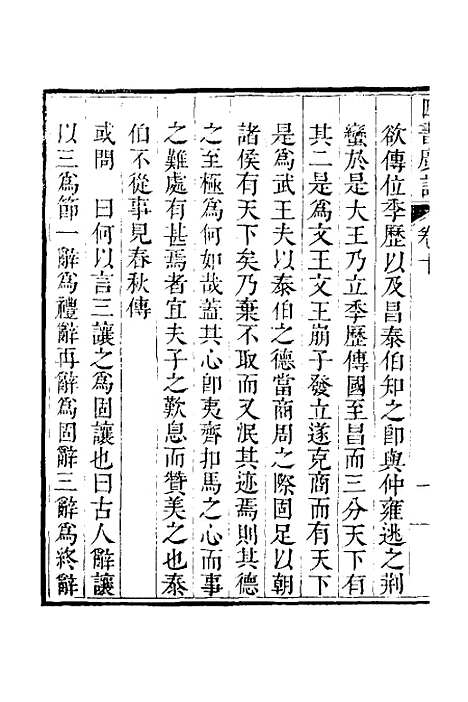 欲傳位季歷以及昌泰伯知之卽與仲雍逃之荆
蠻於是大王乃立季歷傳國至昌而三分天下有
其二是爲文王文王崩子發立遂克商而有天下
是爲武王夫以泰伯之德當商周之際固足以朝
諸侯有天下矣乃棄不取而又泯其迹焉則其德
之至極爲何如哉蓋其心卽夷齊扣馬之心而事
之難處有甚焉者宜夫子之歎息而贊美之也泰
伯不從事見春秋傳
或問 曰何以言三讓之爲固讓也曰古人辭讓
以三爲節一辭爲禮辭再辭爲固辭三辭爲終辭